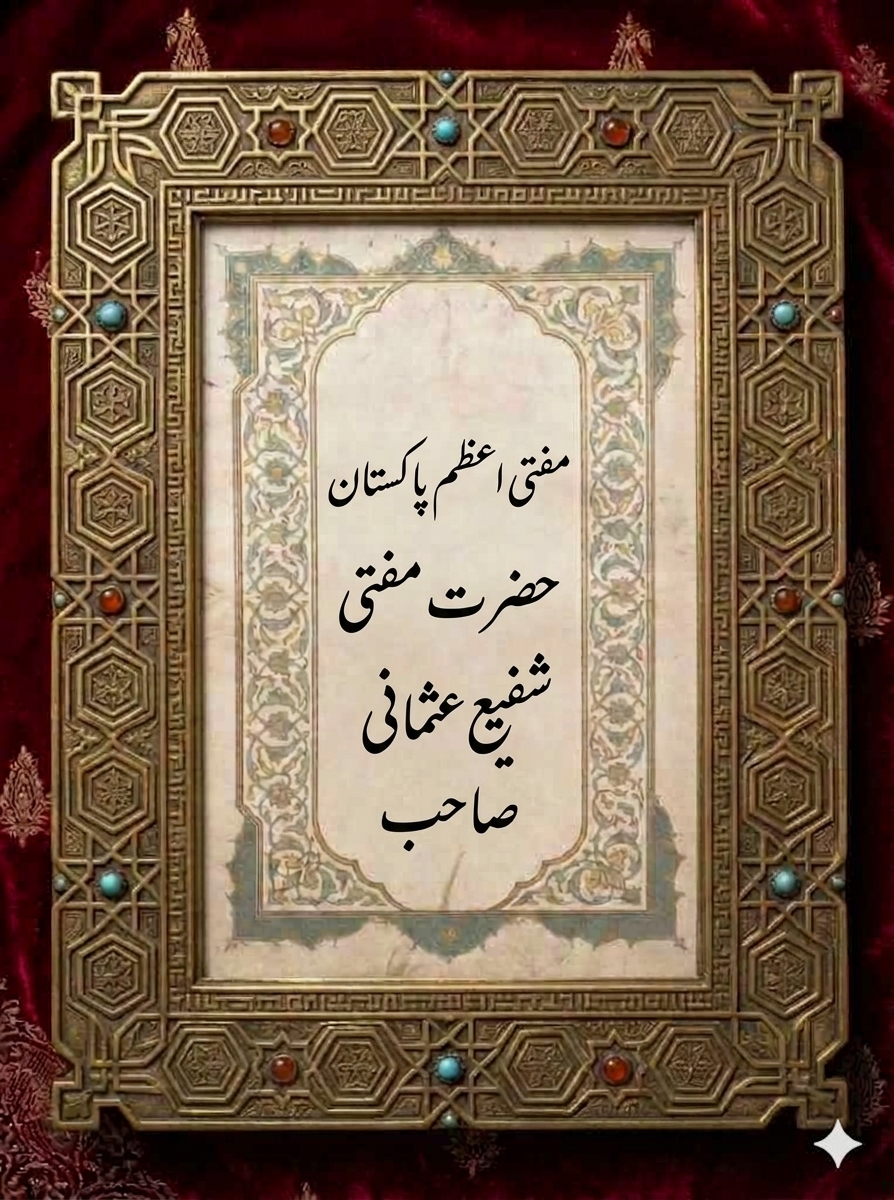 مفتی اعظم پاکستان
حضرت مفتی
شفیع عثمانی
صاحب